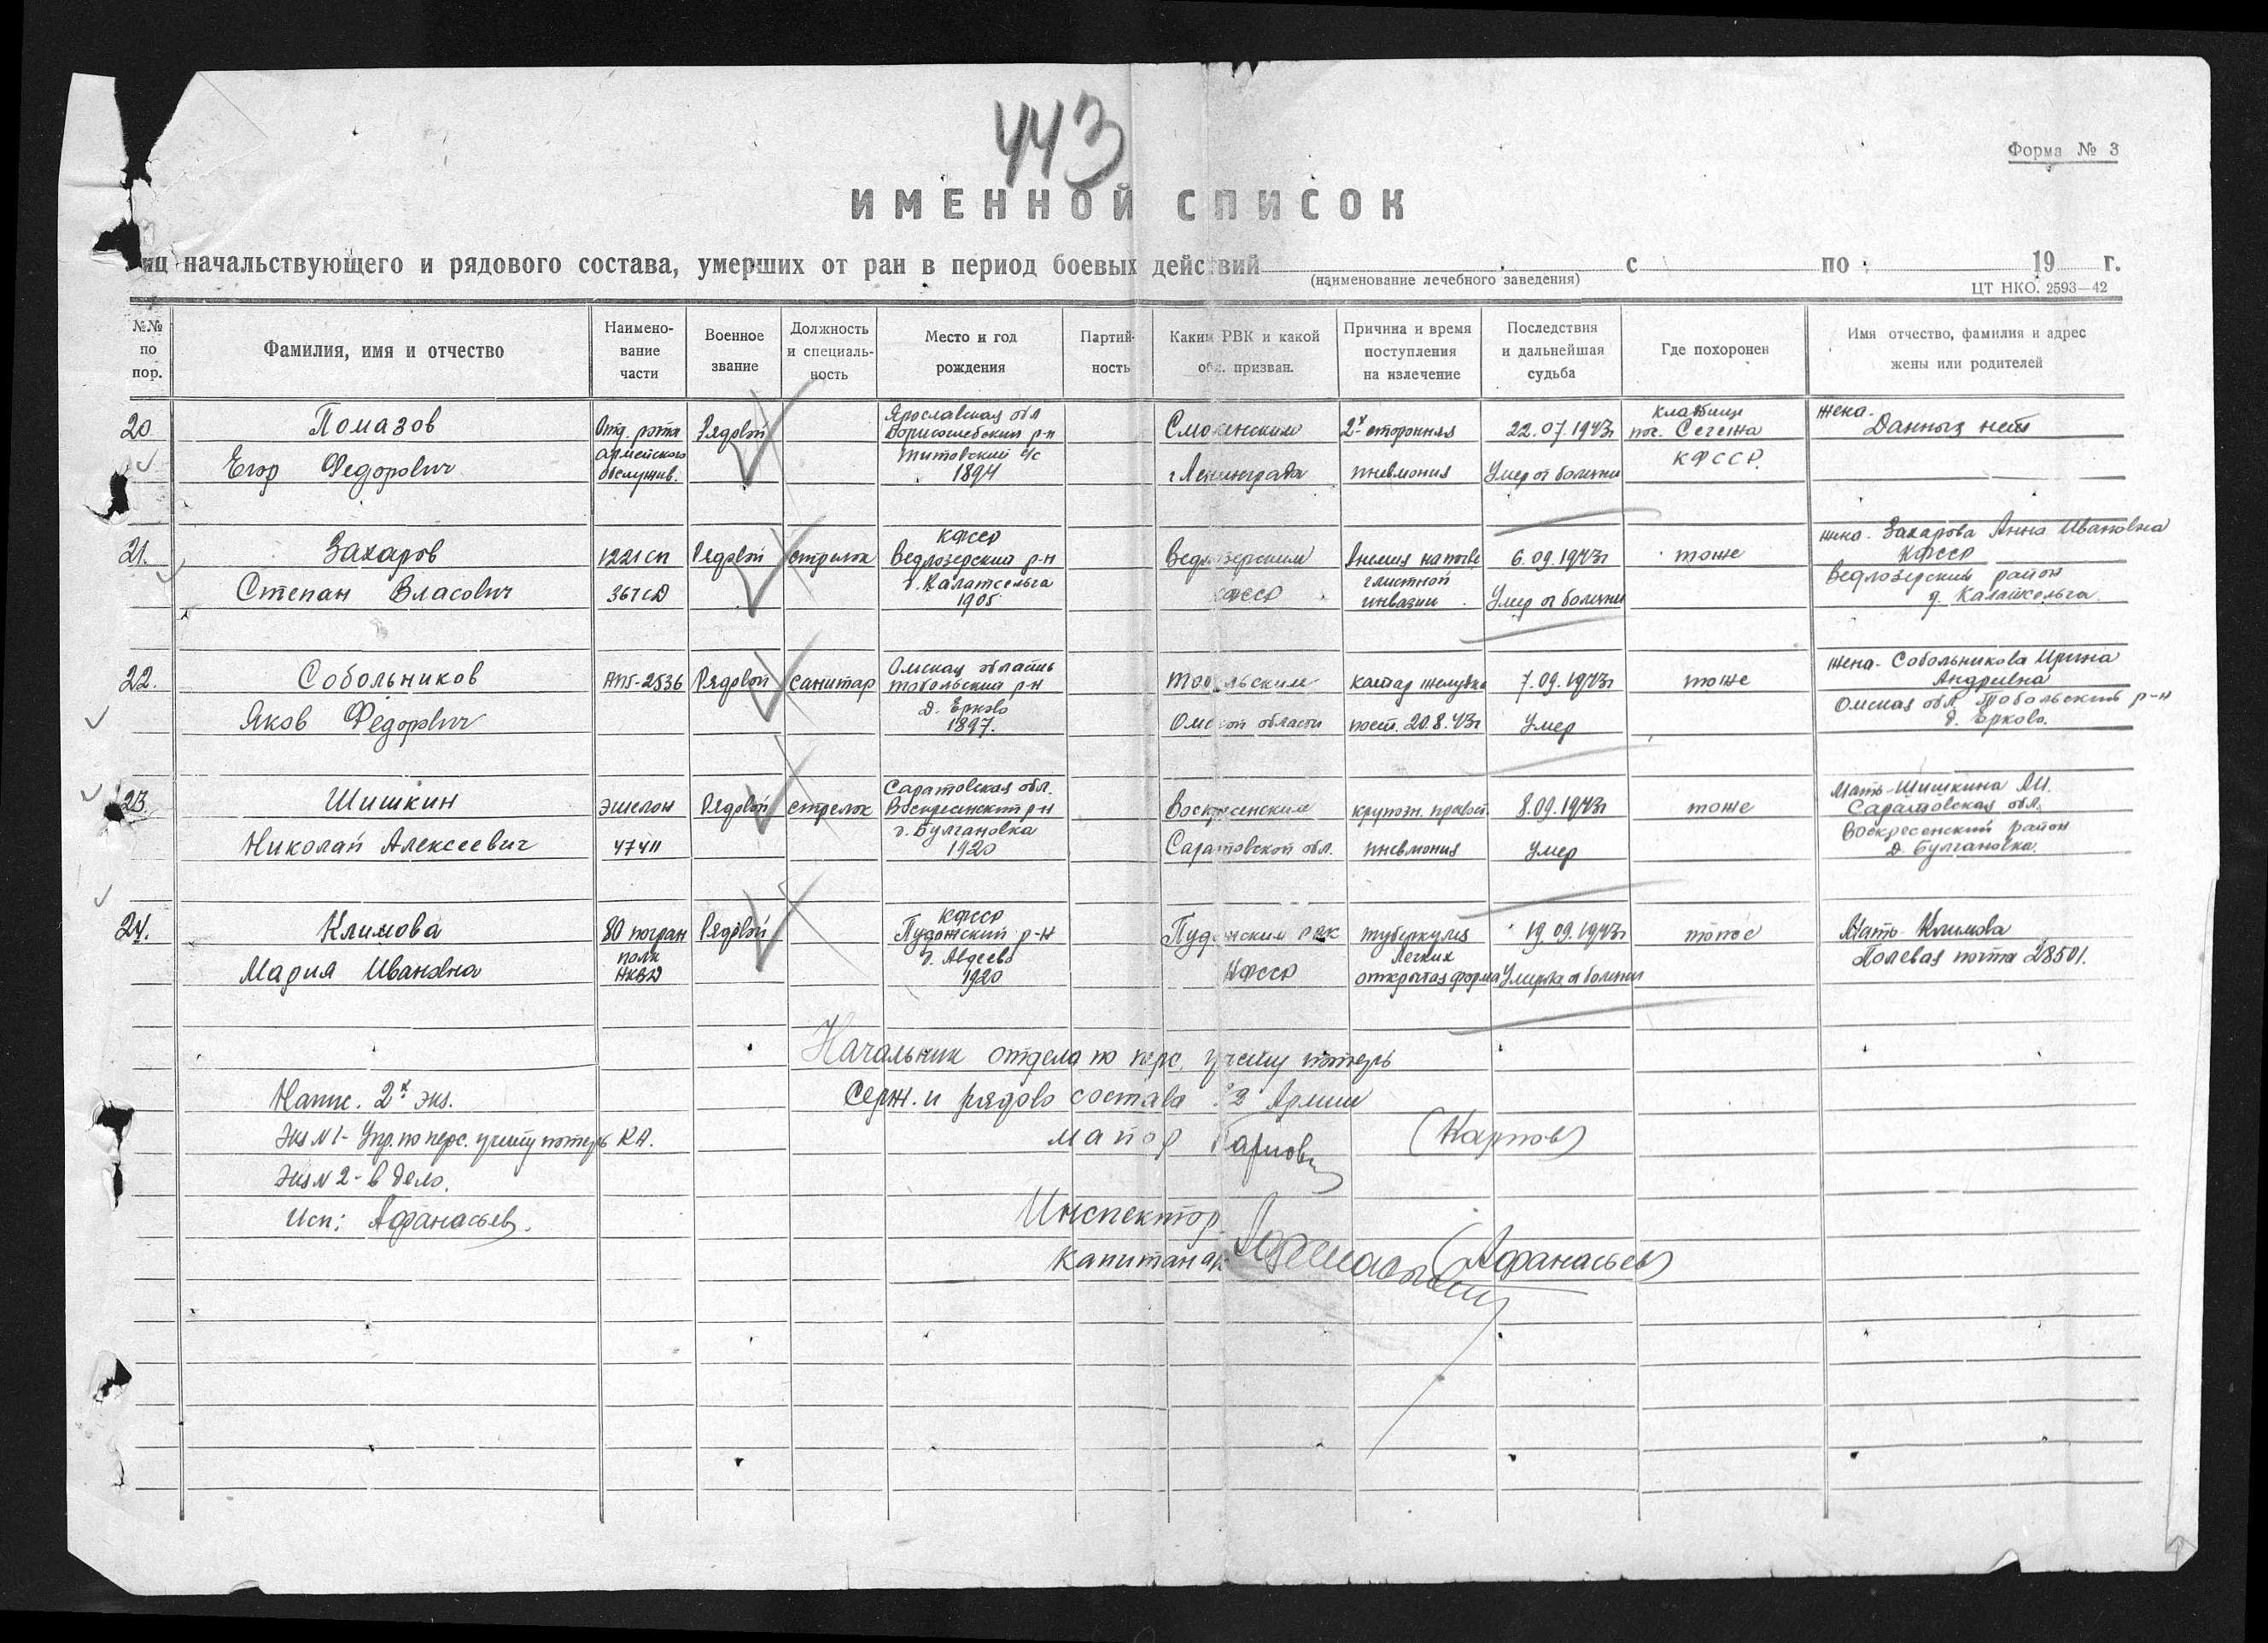 443
Форма № 3
ИМЕННОЙ СПИСОК
иц начальствующего и рядового состава, умерших от ран в период боевых действий с по 19 г.
(наименование лечебного заведения)
ЦТ НКО. 2593—42
№№ по пор.
Фамилия, имя и отчество
Наимено- вание части
Военное звание
Должность и специаль- ность
Место и год рождения
Партий- ность
Каким РВК и какой обл. призван.
Причина и время поступления на излечение
Последствия и дальнейшая судьба
Где похоронен
Имя отчество, фамилия и адрес жены или родителей
20
Помазов
Егор Федорович
Отд. рота
армейского
обслужив.
Рядовой
Ярославская обл
Борисоглебский р-н
Титовский с/с
1894
Смоленским
г Ленинграда
2х сторонняя
пневмония
22.07.1943г
Умер от болезни
кладбище
пос. Сегежа
КФССР.
жена.
Данных нет
21.
Захаров
Степан Власович
1221 сп
367 сд
Рядовой
стрелок
КФССР
Ведлозерский р-н
д. Калатсельга
1905
Ведлозерским
КФССР
глистной
инвазии
6.09.1943г
Умер от болезни
тоже
жена. Захарова Анна Ивановна
КФССР
Ведлозерский район
22.
Собольников
Яков Федорович
ППГ-2536
Рядовой
санитар
Омская область
Тобольский р-н
д. Ерково
1897.
Тобольским
Омской области
катар желудка
пост. 20.8.43г
7.09.1943г
Умер
тоже
жена- Собольникова Ирина
Андреевна
Омская обл. Тобольский р-н
д. Ерково.
23
Шишкин
Николай Алексеевич
эшелон
47411
Рядовой
стрелок
Саратовская обл.
Воскресенский р-н
д. Булгаковка
1920
Воскресенским
Саратовской обл.
крупозн. правост.
пневмония
8.09.1943г
Умер
тоже
Мать-Шишкина
Саратовская обл.
Воскресенский район
д. Булгаковка.
24.
Климова
Мария Ивановна
80 погран
полк
НКВД
Рядовой
КФССР
Пудожский р-н
д. Авдеево
1920
Пудожским РВК
КФССР
туберкулез
легких
открытая форма
19.09.1943г
Умерла от болезни
тоже
Мать Климова
Полевая почта 28501.
Начальник отдела по перс. учету потерь
Серж. и рядово состава 32 Армии
майор Карпов (Карпов)
Напис. 2х экз.
Экз N 1- Упр. по перс. учету потерь КА.
Экз N 2- в дело.
Исп: Афанасьев.
Инспектор
капитан а/с Афанасьев (Афанасьев)